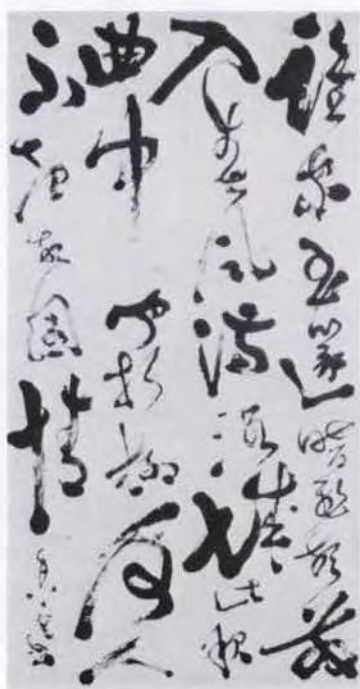 誰家玉篴暗飛聲散
入春風滿洛城此夜
曲中聞折柳何人
不起故園情